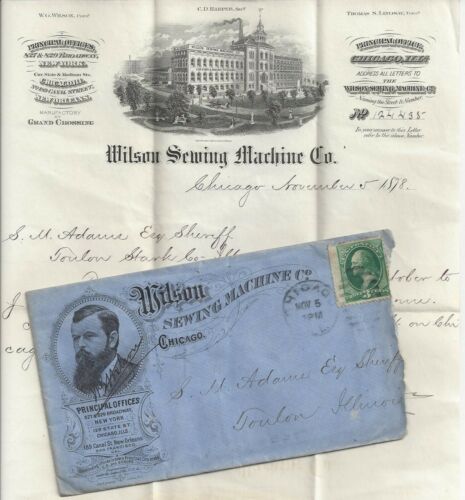 W.G. Wilson, Prest.
C.D. Harper, Secy.
Thomas S. Lindsay, Treas.
PRINCIPAL OFFICES,
827 & 829 BROADWAY,
NEW YORK.
Cor. State & Madison Sts.
CHICAGO.
CANAL STREET,
NEW ORLEANS.
MANUFACTORY
GRAND CROSSING
PRINCIPAL OFFICE,
CHICAGO, ILL.
ADDRESS ALL LETTERS TO
THE
WILSON SEWING MACHINE CO.
Naming the Street & Number.
No 124495
In your answer to this Letter
refer to the above Number.
Wilson Sewing Machine Co.
Chicago November 5 1878.
S. M. Adams Esq Sheriff
Toulon Stark Co Ills
October to
on Chi
cag
Wilson
SEWING MACHINE CO.
CHICAGO.
CHICAGO
NOV 5
PM
W.G. Wilson
PRINCIPAL OFFICES
827 & 829 BROADWAY,
NEW YORK
STATE ST.
CHICAGO, ILLS.
189 Canal St. New Orleans
SAN FRANCISCO
S. M. Adams Esq Sheriff
Toulon Illinois